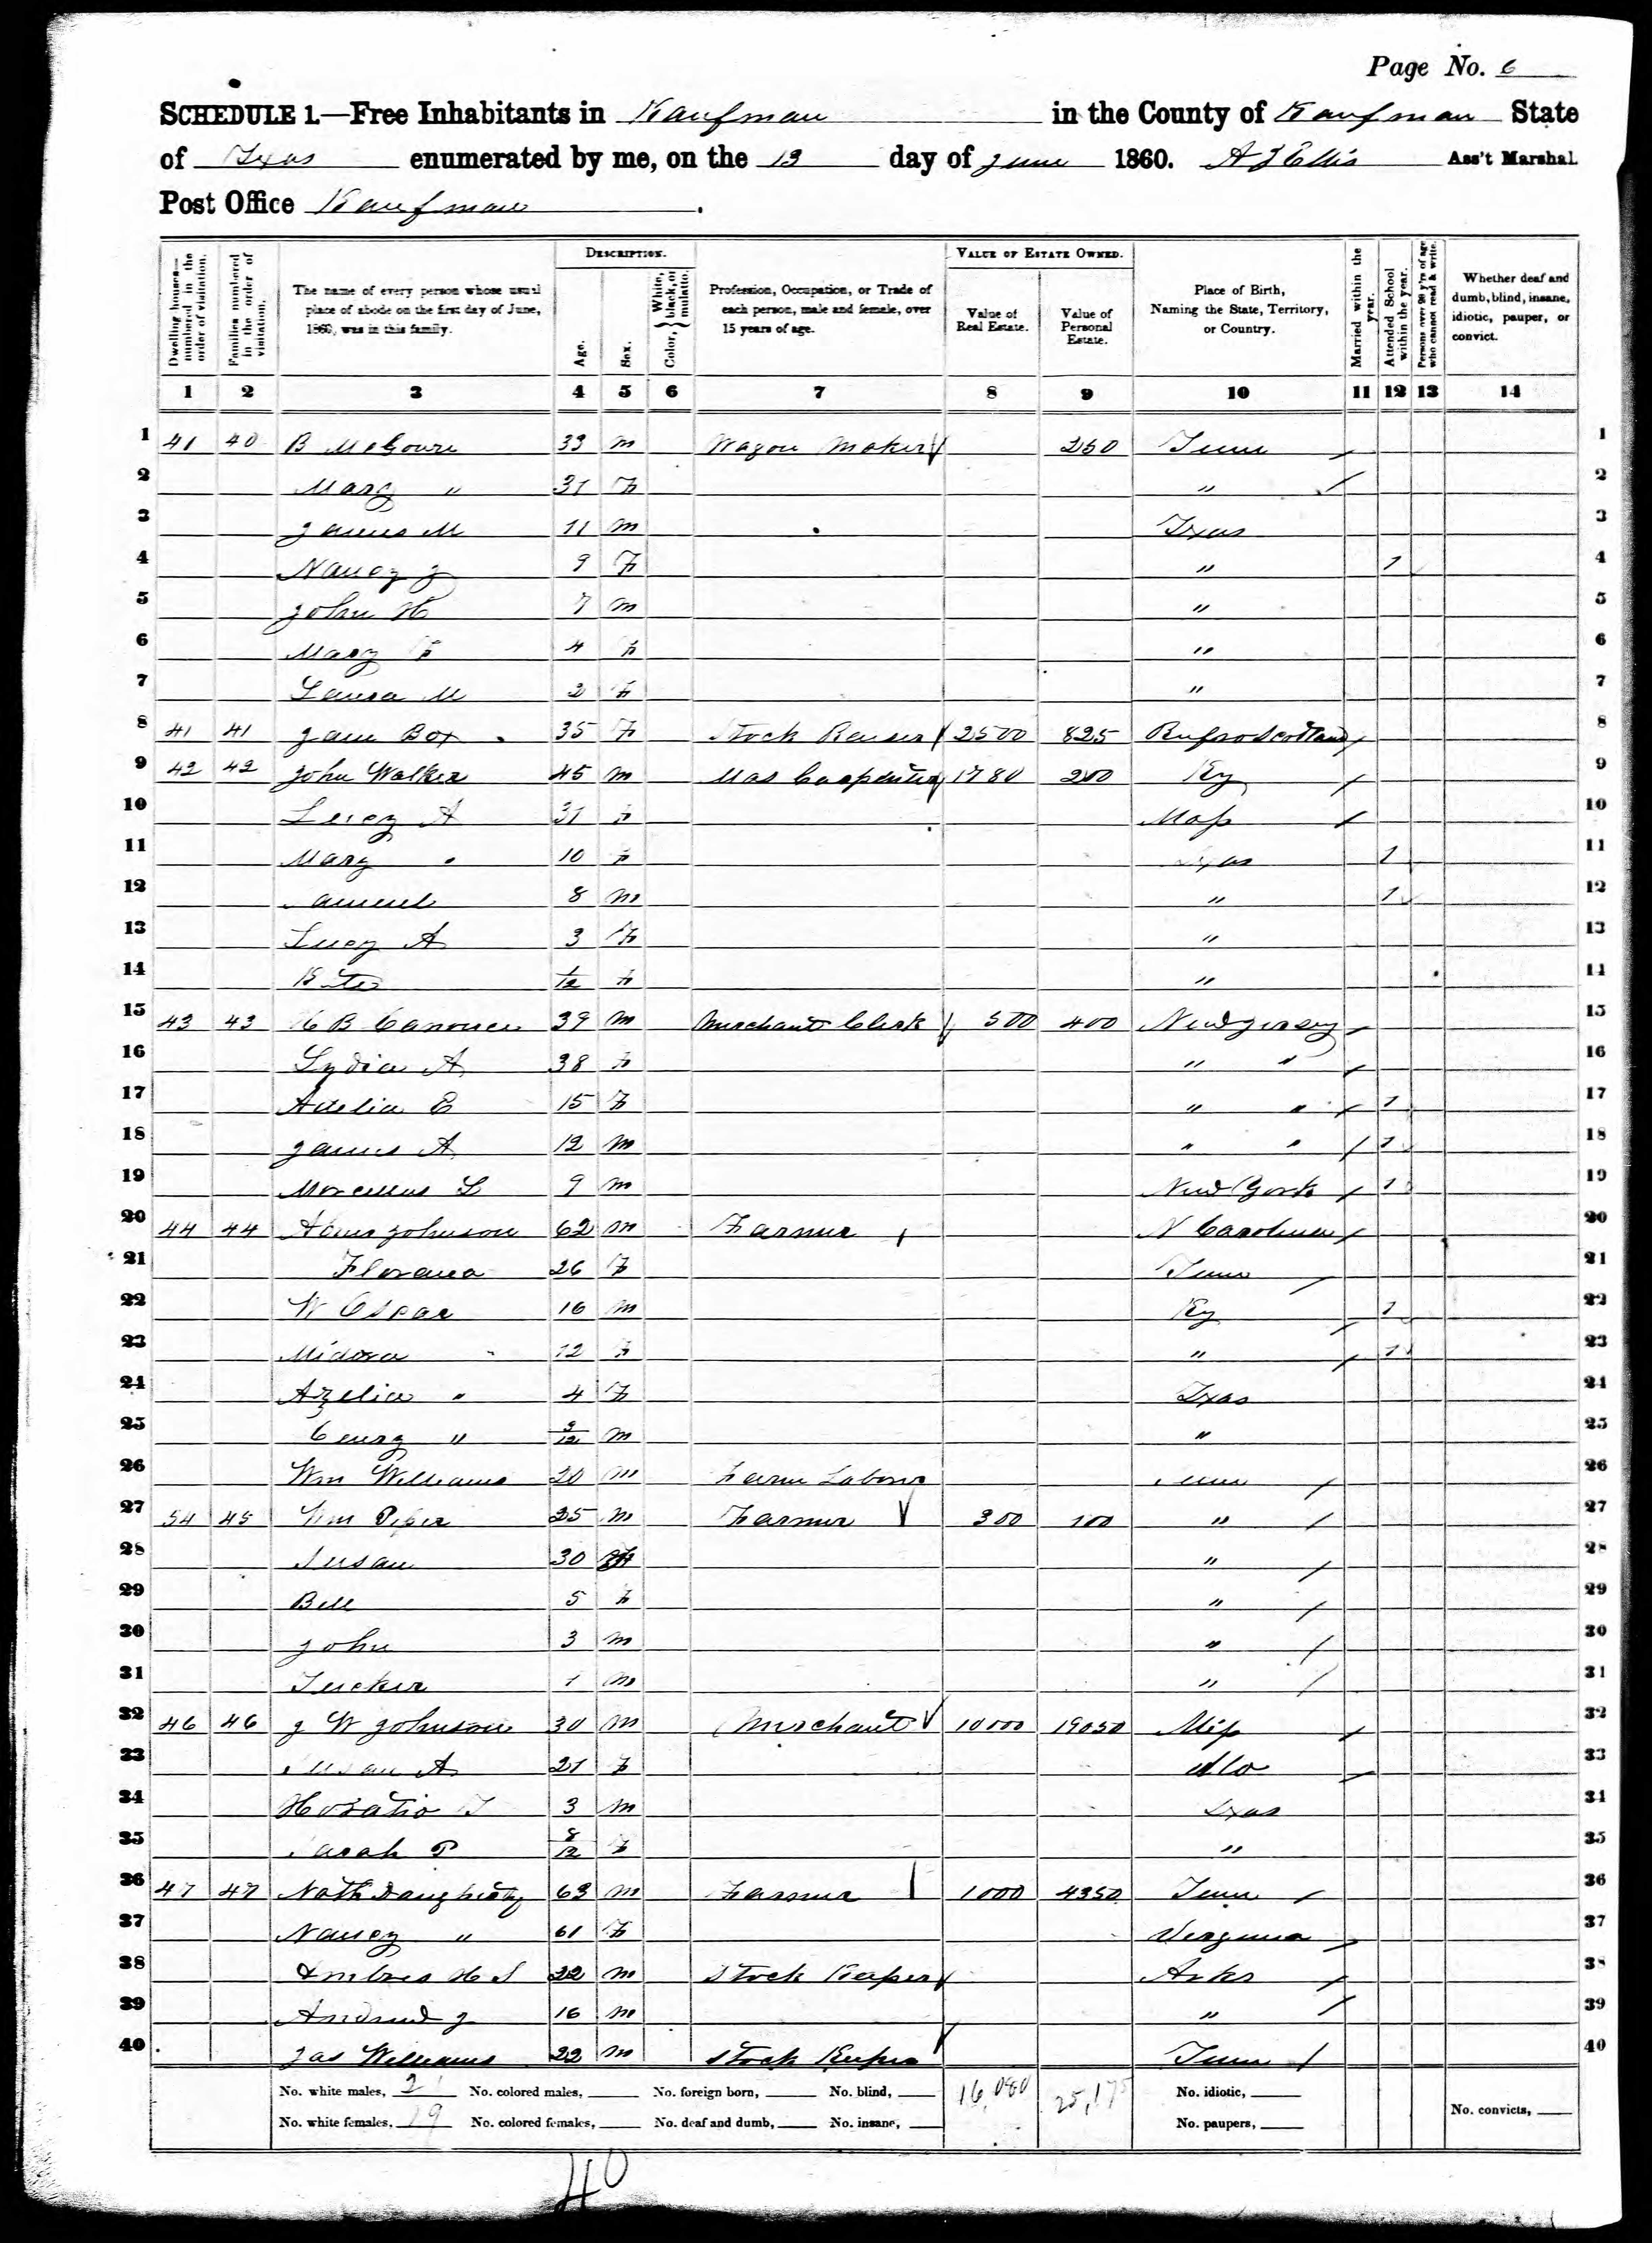 Page No. 6
SCHEDULE 1.—Free Inhabitants in Kaufman in the County of Kaufman State
of Texas enumerated by me, on the 13 day of June 1860. A J Ellis Ass't Marshal.
Post Office Kaufman.
DESCRIPTION. VALUE OF ESTATE OWNED.
Dwelling houses—numbered in the order of visitation. Families numbered in the order of visitation. The name of every person whose usual place of abode on the first day of June, 1860, was in this family. Age. Sex. Color, { White, black, or mulatto. Profession, Occupation, or Trade of each person, male and female, over 15 years of age. Value of Real Estate. Value of Personal Estate. Place of Birth, Naming the State, Territory, or Country. Married within the year. Attended School within the year. Persons over 20 y'rs of age who cannot read & write. Whether deaf and dumb, blind, insane, idiotic, pauper, or convict.
1 2 3 4 5 6 7 8 9 10 11 12 13 14
1 41 40 B 33 m Wagon Maker 250 Tenn 1
2 Mary " 31 F " 2
3 James M 11 m Texas 3
4 Nancy J 9 F " 1 4
5 John H 7 m " 5
6 Mary F 4 F " 6
7 Laura M 2 F " 7
8 41 41 Jane Box 35 F Stock Raiser 2500 825 Scotland 8
9 42 42 John Walker 45 m Mas Carpenter 1780 200 Ky 9
10 Lucy A 31 F Mass 10
11 Mary 10 F Texas 1 11
12 Samuel 8 m " 1 12
13 Lucy A 3 F " 13
14 1/12 F " 14
15 43 43 H B 39 m Merchant Clerk 500 400 New Jersey 15
16 Lydia A 38 F " " 16
17 Adelia E 15 F " " 1 17
18 James A 12 m " " 1 18
19 Marcellus L 9 m New York 1 19
20 44 44 Johnson 62 m Farmer N Carolina 20
21 Florana 26 F Tenn 21
22 W Oscar 16 m Ky 1 22
23 Midora 12 F " 1 23
24 Azelia " 4 F Texas 24
25 " 3/12 m " 25
26 Wm Williams 20 m Farm Labor Tenn 26
27 54 45 Wm Piper 25 m Farmer 300 100 " 27
28 Susan 30 F " 28
29 Bell 5 F " 29
30 John 3 m " 30
31 Tucker 1 m " 31
32 46 46 J W Johnson 30 m Merchant 10000 19050 Miss 32
33 Susan A 21 F Mo 33
34 Horatio T 3 m Texas 34
35 Sarah P 8/12 F " 35
36 47 47 Nath Daugherty 63 m Farmer 1000 4350 Tenn 36
37 Nancy " 61 F Virginia 37
38 Ambros H S 22 m Stock Keeper Arks 38
39 Andrew J 16 m " 39
40 Jas Williams 22 m Stock Keeper Tenn 40
No. white males, 21 No. colored males, No. foreign born, No. blind, 16,080 25,175 No. idiotic,
No. white females, 19 No. colored females, No. deaf and dumb, No. insane, No. paupers, No. convicts,
40